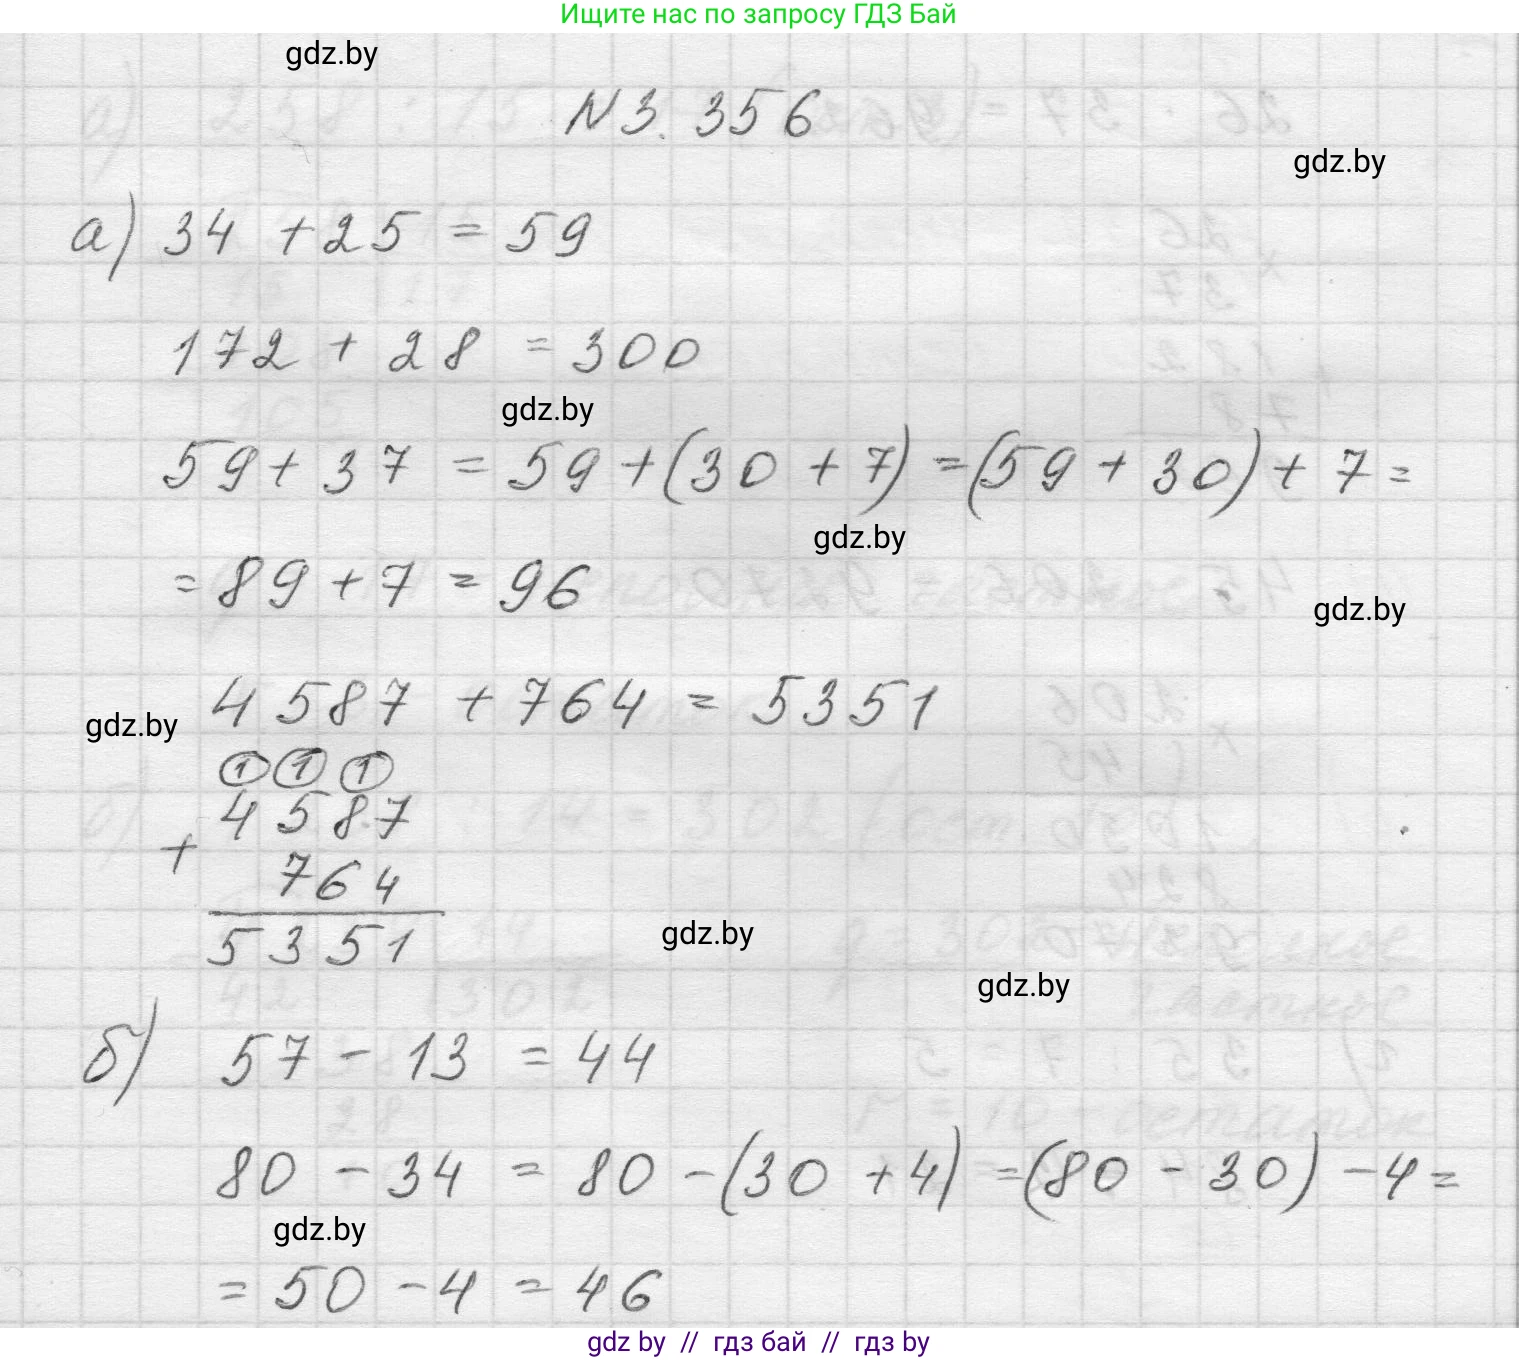 Ищите нас по запросу ГДЗ Бай
gdz.by
N3.356
gdz.by
а) 34 + 25 = 59
172 + 28 = 300
gdz.by
59 + 37 = 59 + (30 + 7) = (59 + 30) + 7 =
gdz.by
= 89 + 7 = 96
gdz.by
4587 + 764 = 5351
gdz.by
1 1 1
4587
+
764
5351
gdz.by
gdz.by
б) 57 - 13 = 44
80 - 34 = 80 - (30 + 4) = (80 - 30) - 4 =
gdz.by
= 50 - 4 = 46
gdz by // гдз бай // гдз by